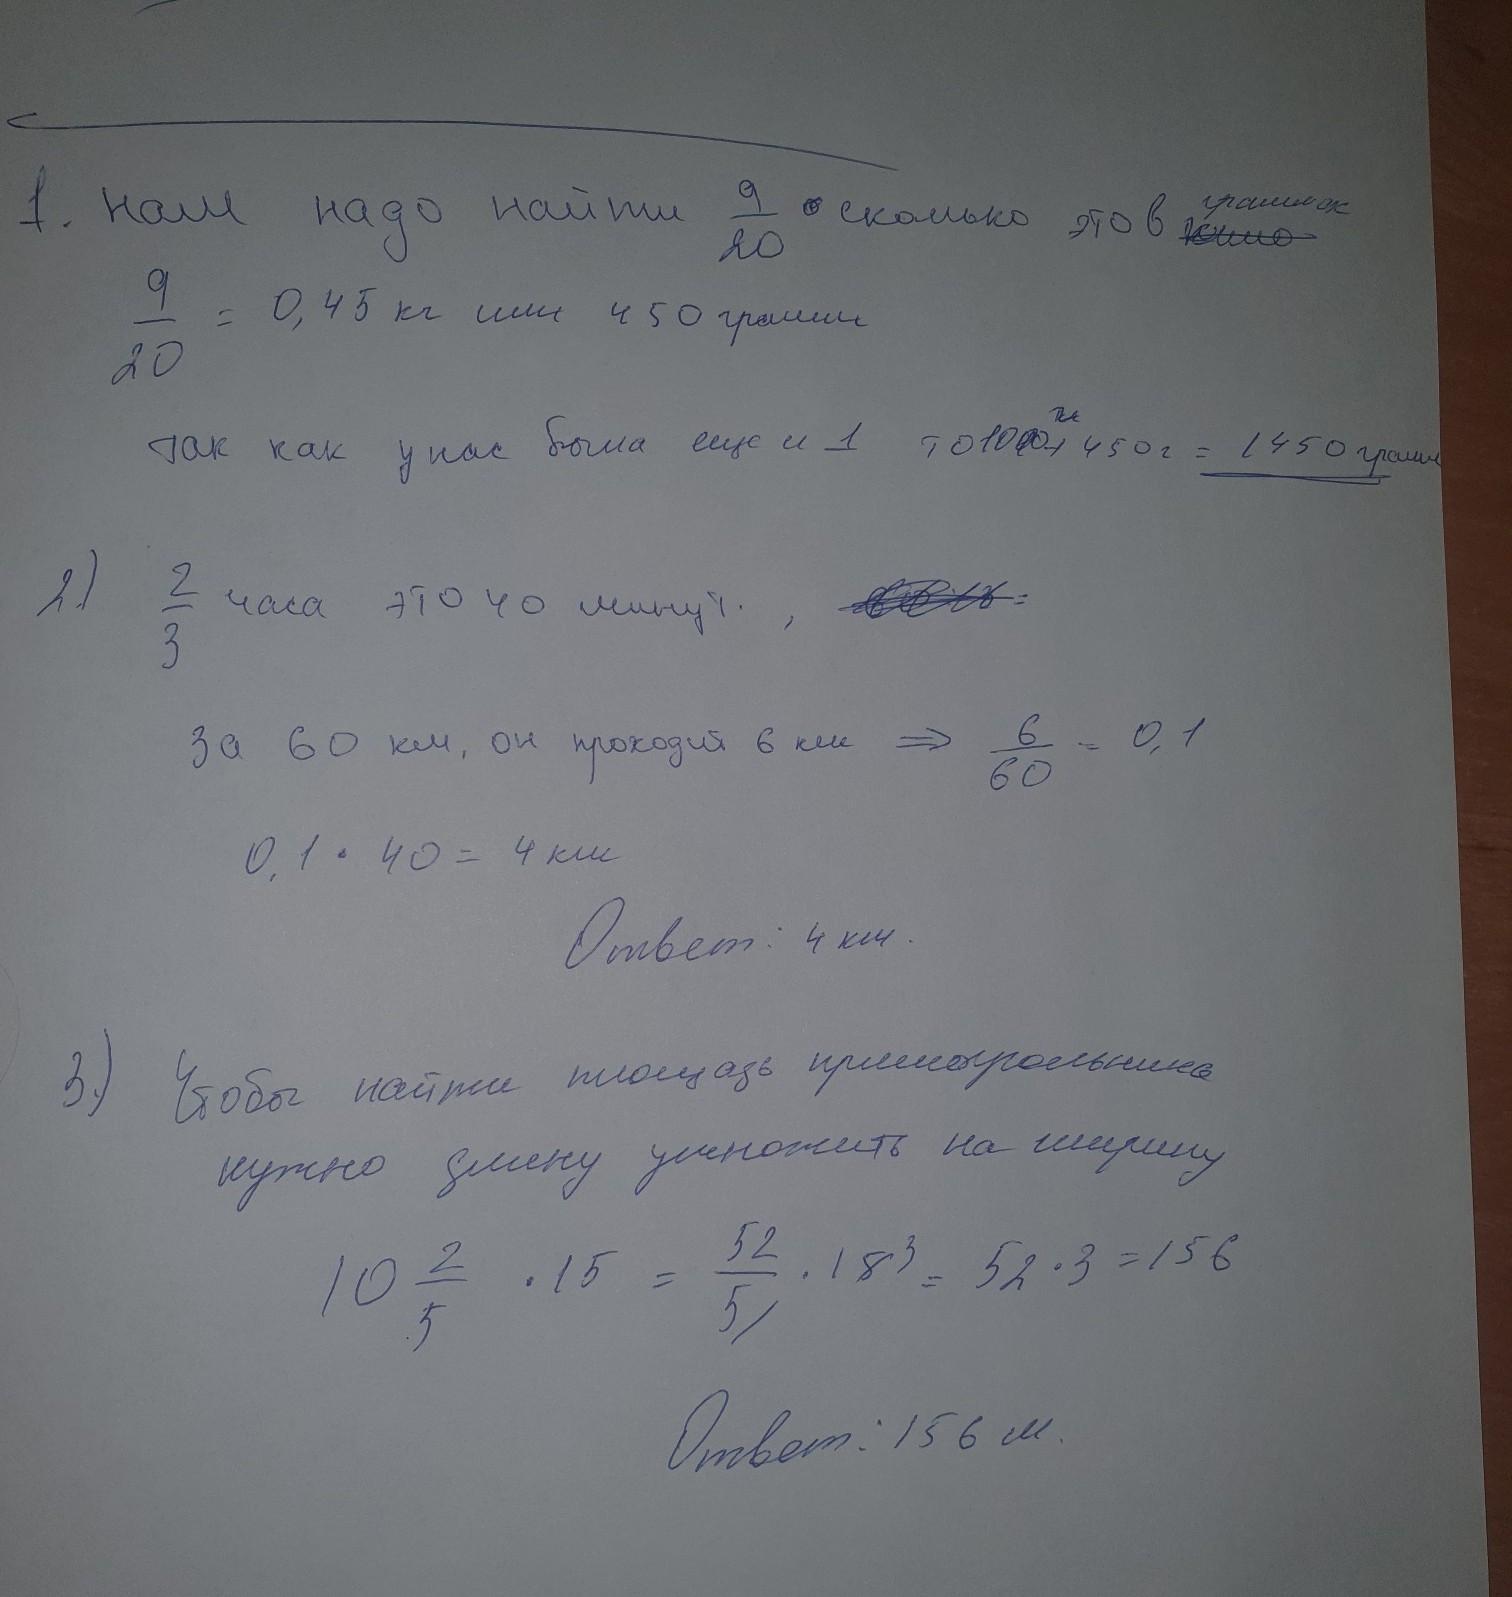 1. нам надо найти 9/20 сколько это в граммах
9/20 = 0,45 кг или 450 грамм
так как у нас была еще и 1 то 1000г + 450г = 1450 грамм
2.) 2/3 часа это 40 минут.,
За 60 км, он проходит 6 км ⇒ 6/60 = 0,1
0,1 · 40 = 4 км
Ответ: 4 км.
3.) Чтобы найти площадь прямоугольника
нужно длину умножить на ширину
10 2/5 · 15 = 52/5 · 15 3 = 52 · 3 = 156
Ответ: 156 м.